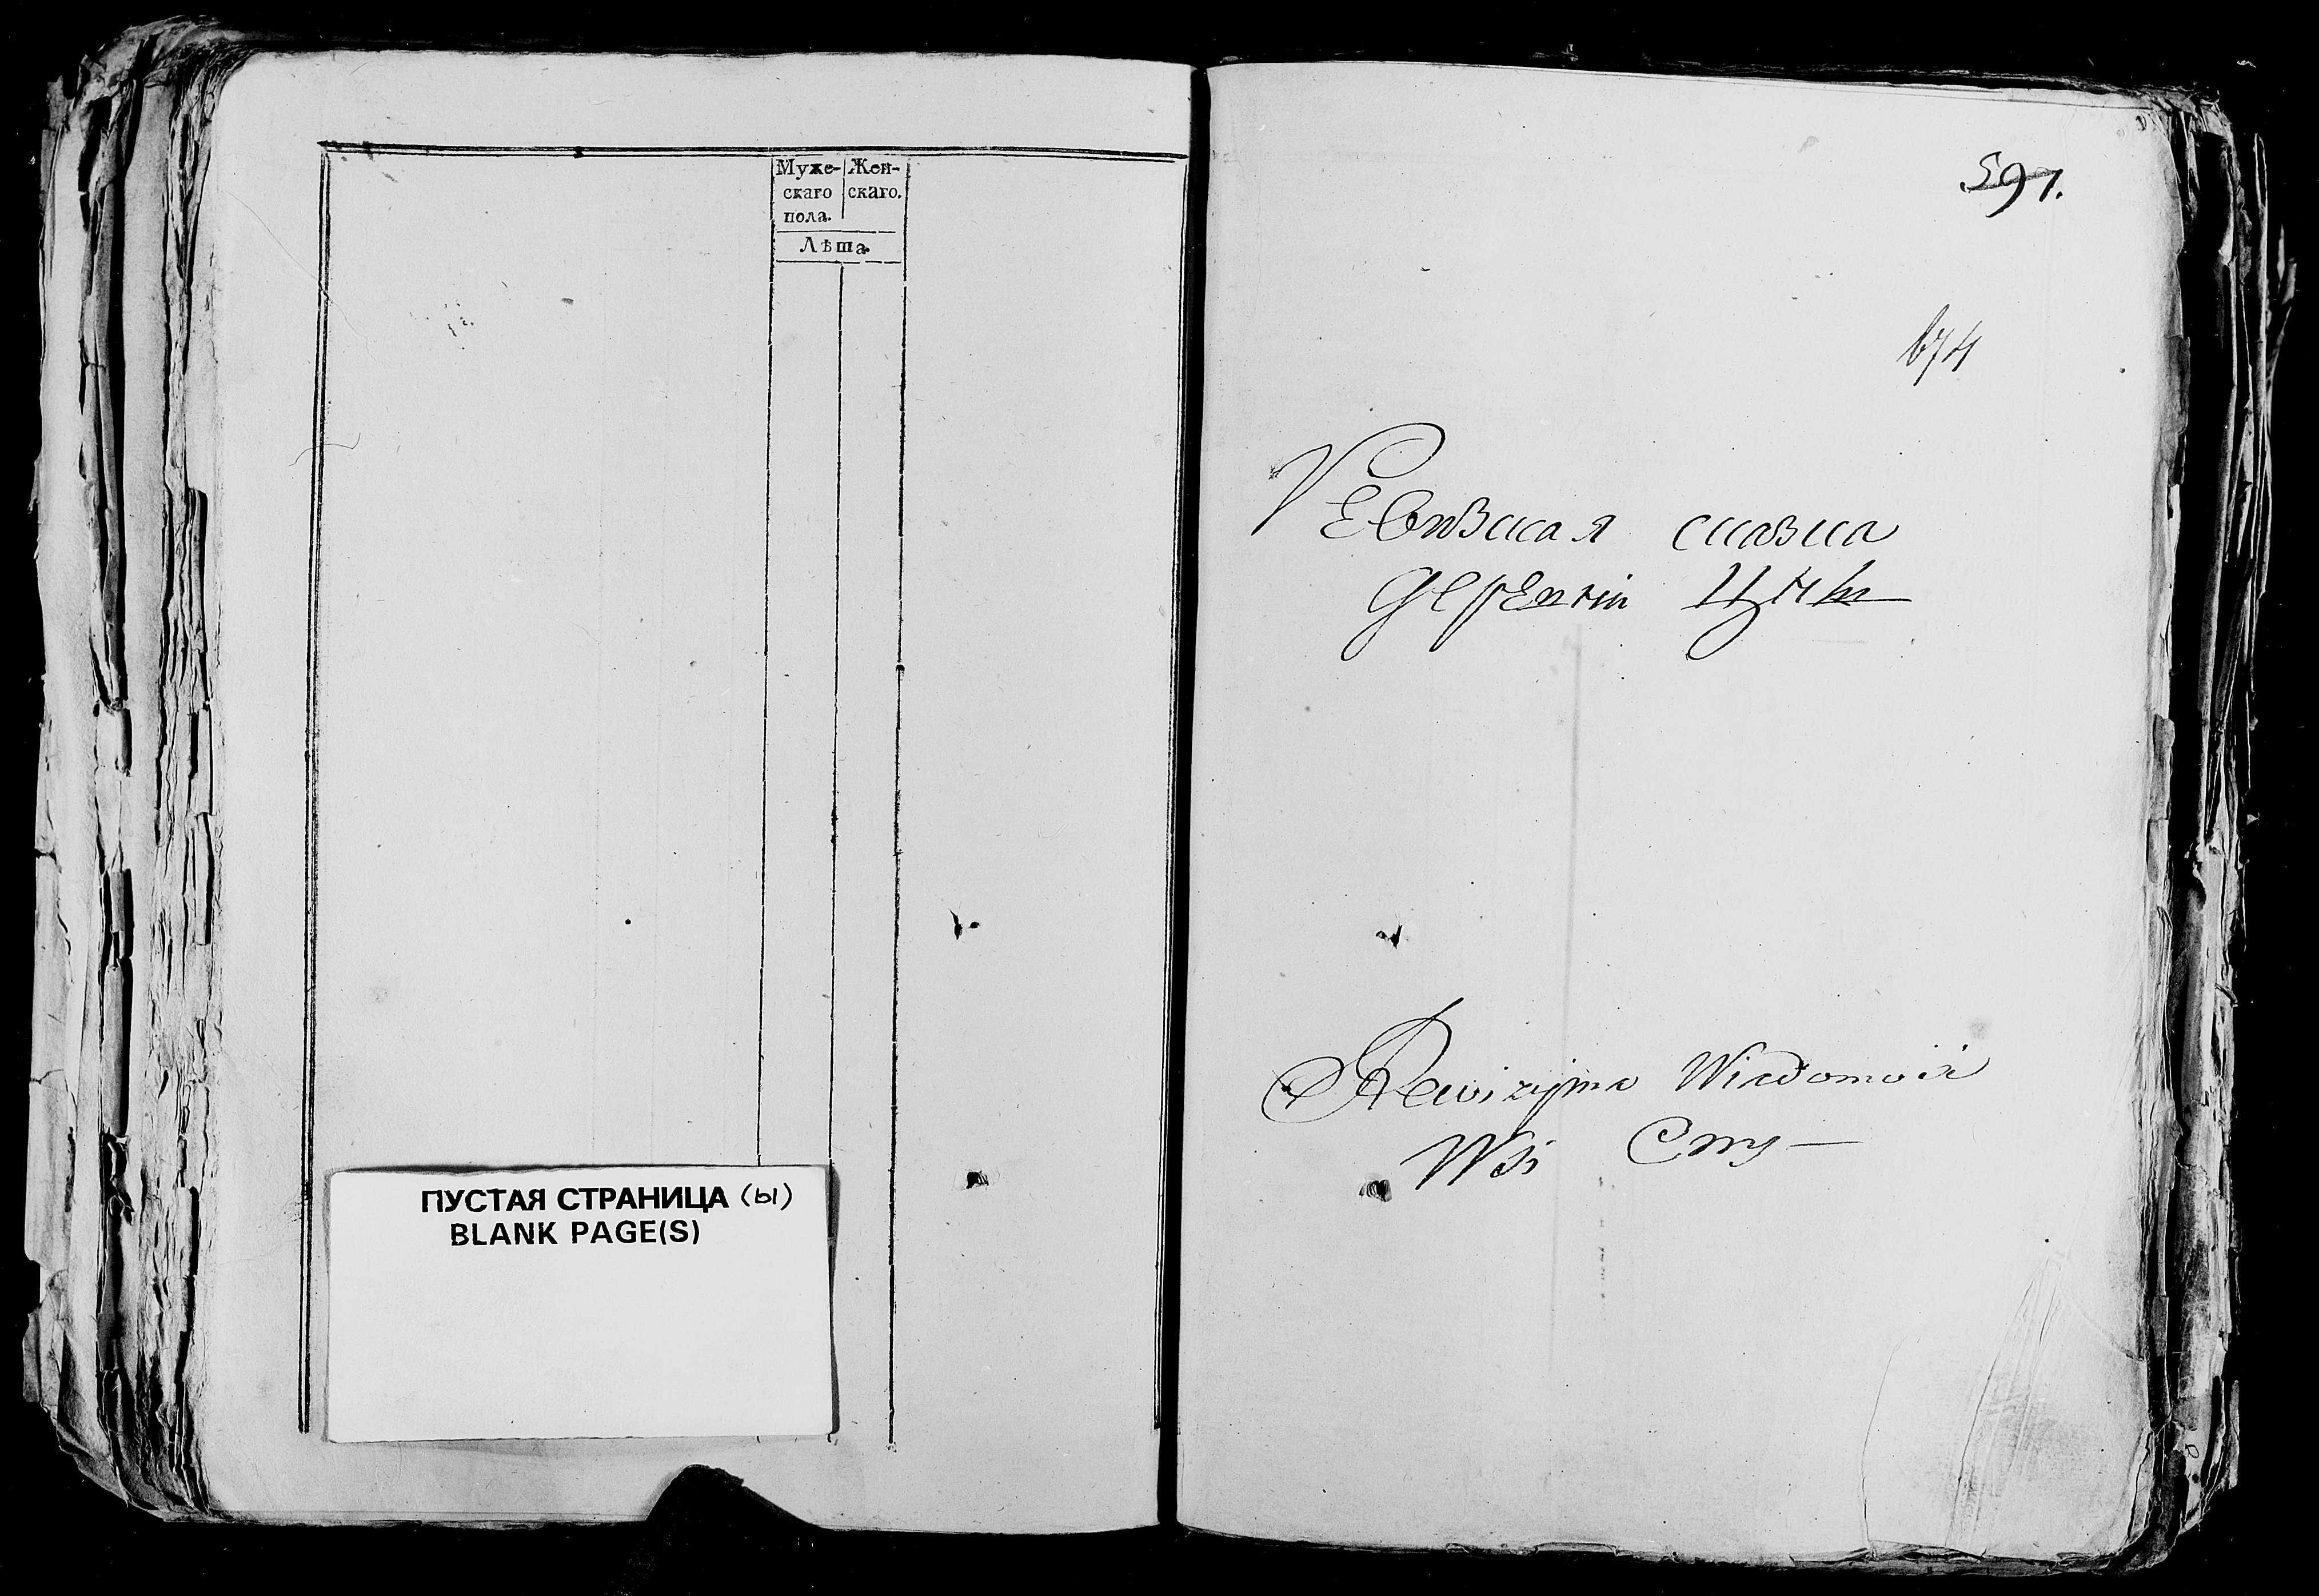 Муже- Жен-
скаго скаго.
пола.
Лѣта.
ПУСТАЯ СТРАНИЦА (ы)
BLANK PAGE(S)
597.
674
Ревизская сказка
деревни Цны
Rewizyina Wiadomość
Wsi Cny